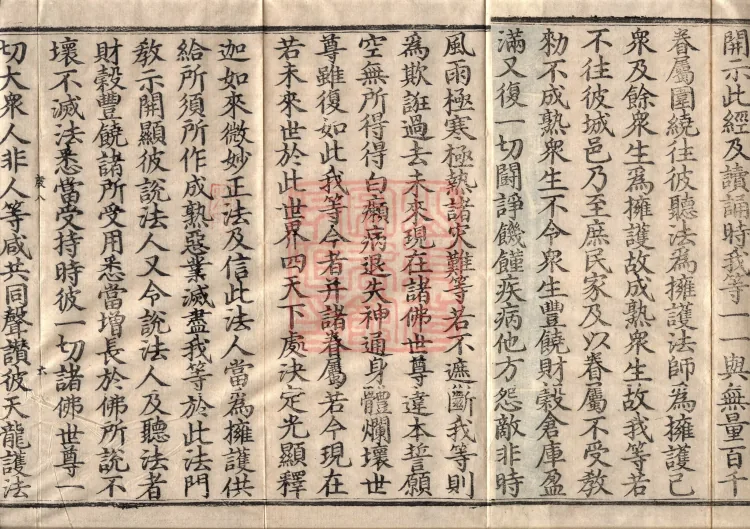 開示此經及讀誦時我等一一與無量百千
眷屬圍繞往彼聽法為擁護法師為擁護已
衆及餘衆生為擁護故成熟衆生故我等若
不往彼城邑乃至庶民家及以眷屬不受教
勑不成熟衆生不令衆生豐饒財穀倉庫盈
滿又復一切鬪諍饑饉疾病他方怨敵非時
風雨極寒極熱諸灾難等若不遮斷我等則
為欺誑過去未來現在諸佛世尊違本誓願
空無所得得白癩病退失神通身體爛壞世
尊雖復如此我等今者并諸眷屬若今現在
若未來世於此世界四天下處決定光顯釋
迦如來微妙正法及信此法人當為擁護供
給所須所作成熟惡業滅盡我等於此法門
教示開顯彼說法人又令說法人及聽法者
財穀豐饒諸所受用悉當增長於佛所說不
壞不滅法悉當受持時彼一切諸佛世尊一
切大衆人非人等咸共同聲讃彼天龍護法